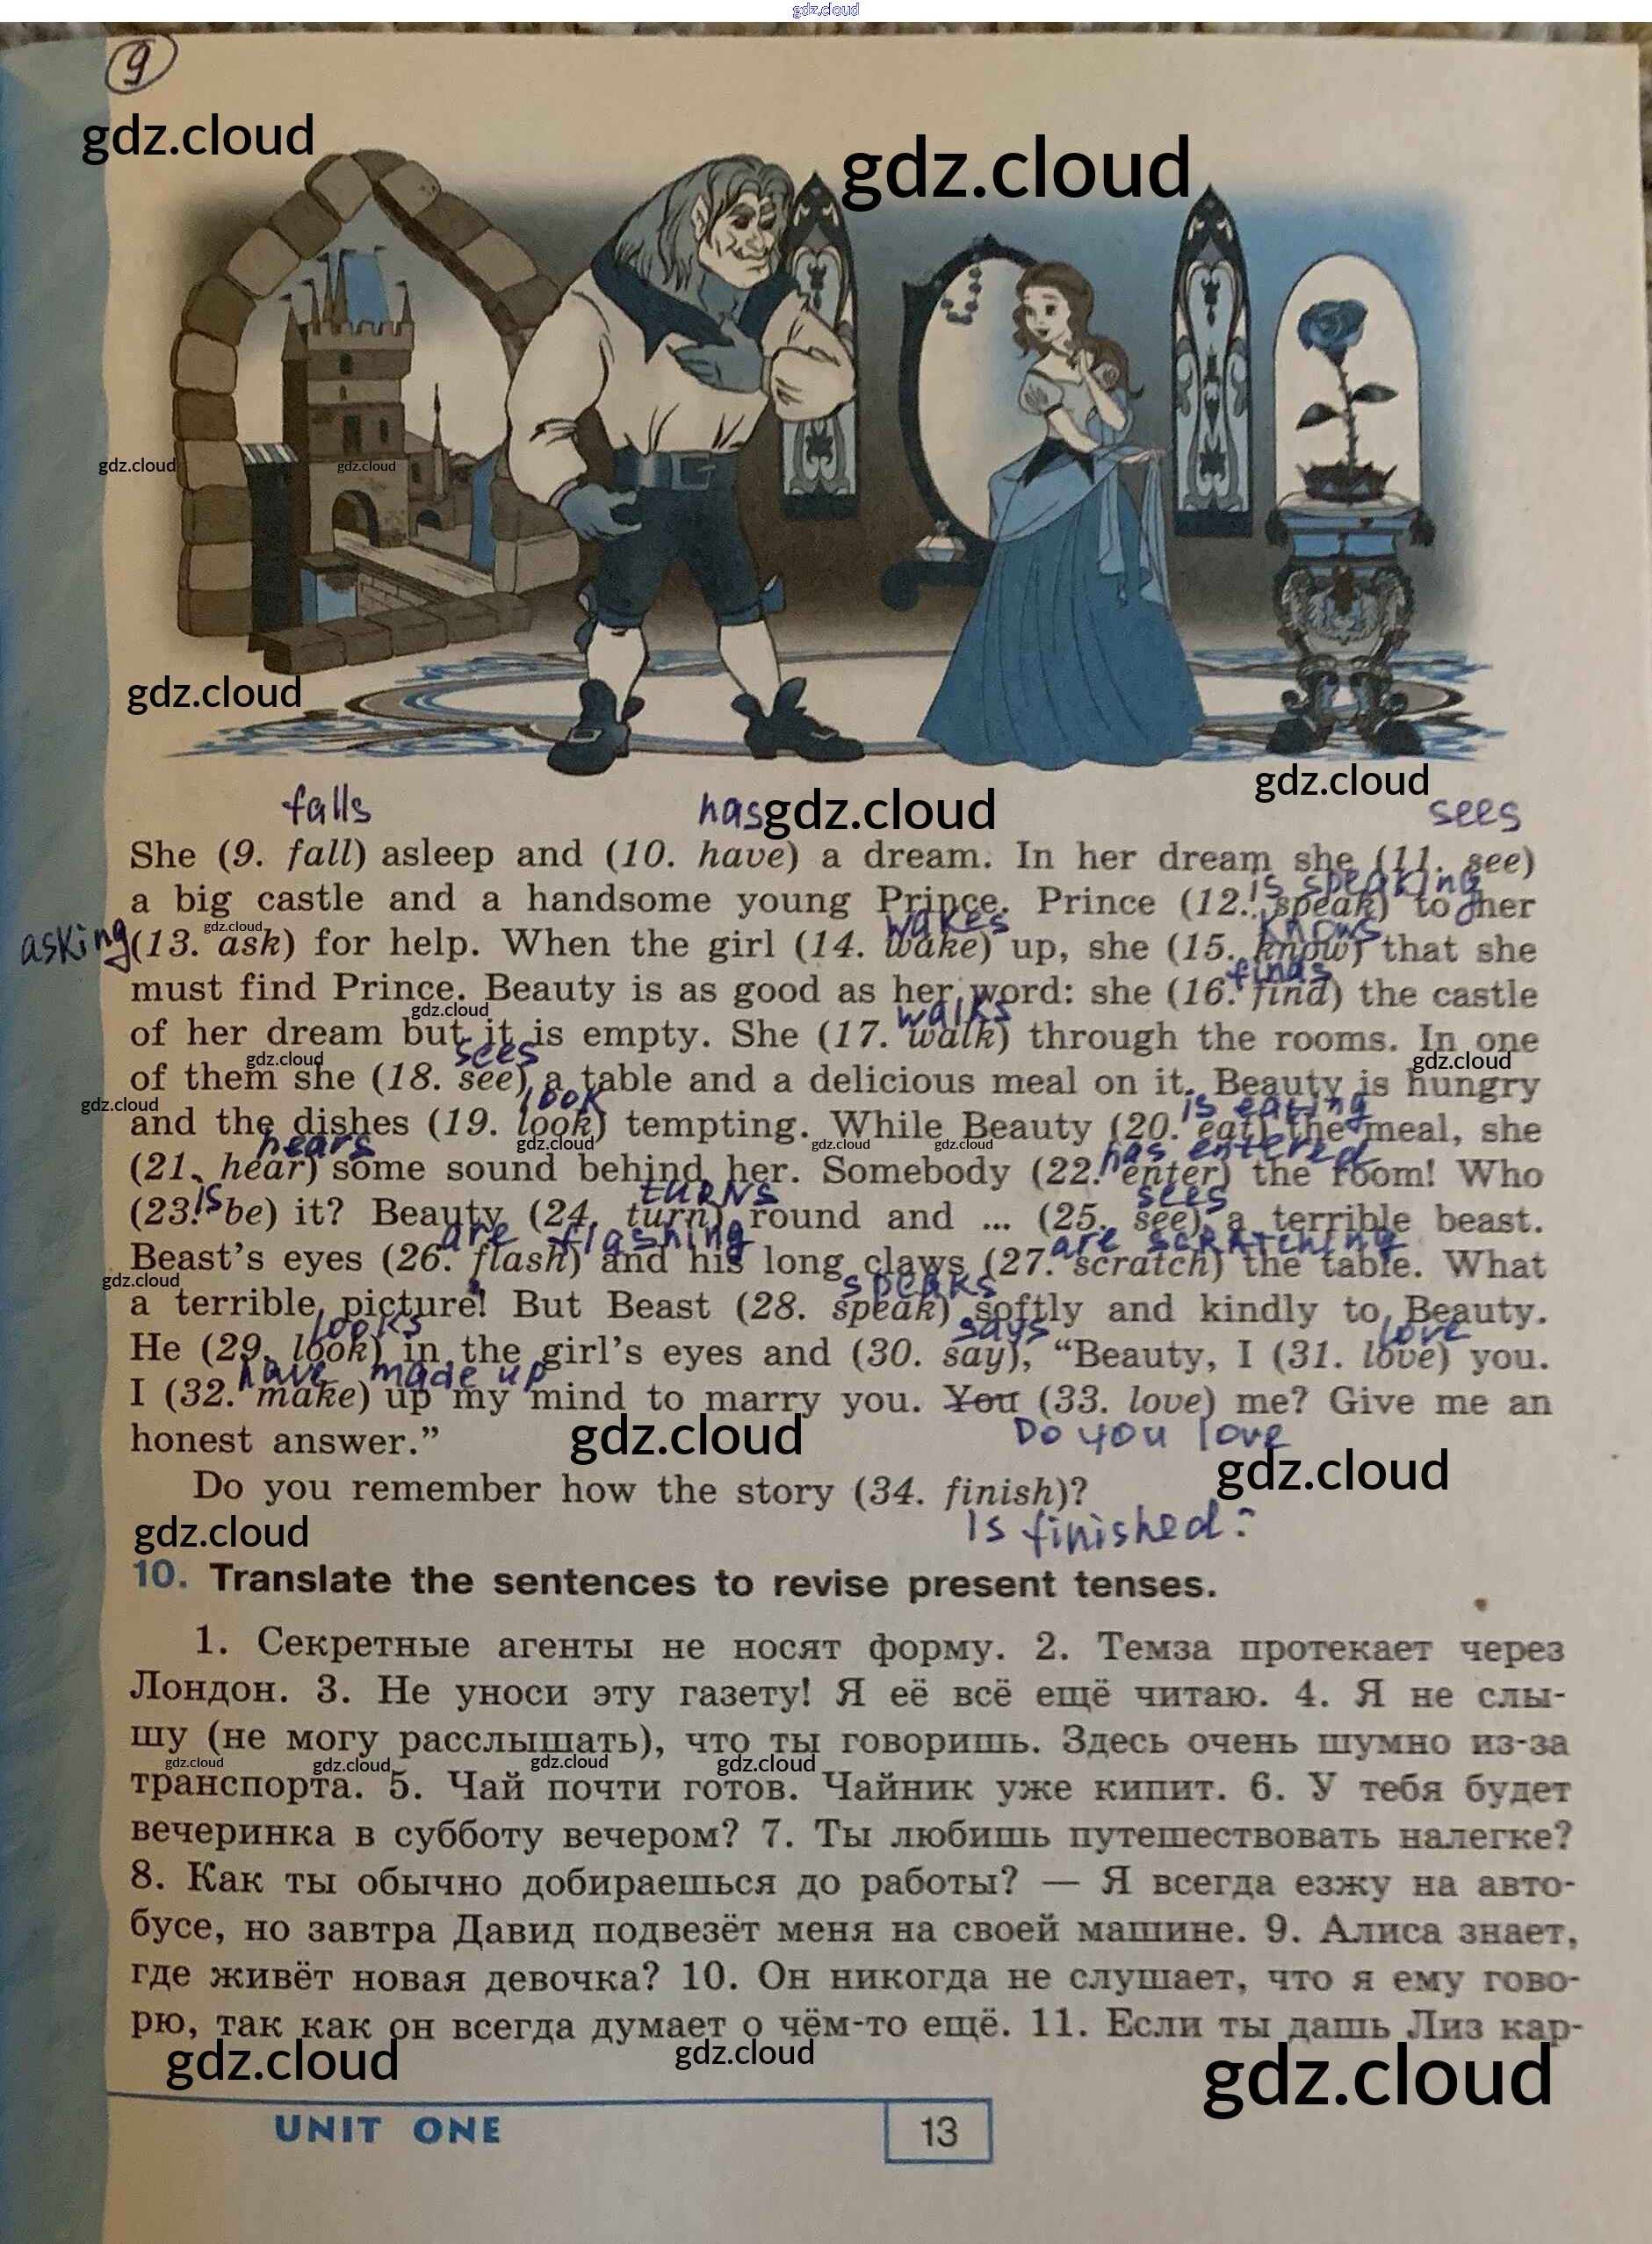 gdz.cloud
9
gdz.cloud
gdz.cloud
gdz.cloud gdz.cloud
gdz.cloud
gdz.cloud
falls has gdz.cloud sees
She (9. fall) asleep and (10. have) a dream. In her dream she (11. see)
is speaking
a big castle and a handsome young Prince. Prince (12. speak) to her
gdz.cloud wakes knows
asking (13. ask) for help. When the girl (14. wake) up, she (15. know) that she
finds
must find Prince. Beauty is as good as her word: she (16. find) the castle
gdz.cloud walks
of her dream but it is empty. She (17. walk) through the rooms. In one
gdz.cloud sees gdz.cloud
of them she (18. see) a table and a delicious meal on it. Beauty is hungry
gdz.cloud look is eating
and the dishes (19. look) tempting. While Beauty (20. eat) the meal, she
hears gdz.cloud gdz.cloud gdz.cloud has entered
(21. hear) some sound behind her. Somebody (22. enter) the room! Who
is turns sees
(23. be) it? Beauty (24. turn) round and ... (25. see) a terrible beast.
are flashing are scratching
Beast's eyes (26. flash) and his long claws (27. scratch) the table. What
gdz.cloud speaks
a terrible picture! But Beast (28. speak) softly and kindly to Beauty.
looks says love
He (29. look) in the girl's eyes and (30. say), "Beauty, I (31. love) you.
have made up
I (32. make) up my mind to marry you. You (33. love) me? Give me an
honest answer." gdz.cloud Do you love
gdz.cloud
Do you remember how the story (34. finish)?
gdz.cloud is finished?
10. Translate the sentences to revise present tenses.
1. Секретные агенты не носят форму. 2. Темза протекает через
Лондон. 3. Не уноси эту газету! Я её всё ещё читаю. 4. Я не слы-
шу (не могу расслышать), что ты говоришь. Здесь очень шумно из-за
gdz.cloud gdz.cloud gdz.cloud gdz.cloud
транспорта. 5. Чай почти готов. Чайник уже кипит. 6. У тебя будет
вечеринка в субботу вечером? 7. Ты любишь путешествовать налегке?
8. Как ты обычно добираешься до работы? — Я всегда езжу на авто-
бусе, но завтра Давид подвезёт меня на своей машине. 9. Алиса знает,
где живёт новая девочка? 10. Он никогда не слушает, что я ему гово-
рю, так как он всегда думает о чём-то ещё. 11. Если ты дашь Лиз кар-
gdz.cloud gdz.cloud gdz.cloud
UNIT ONE 13